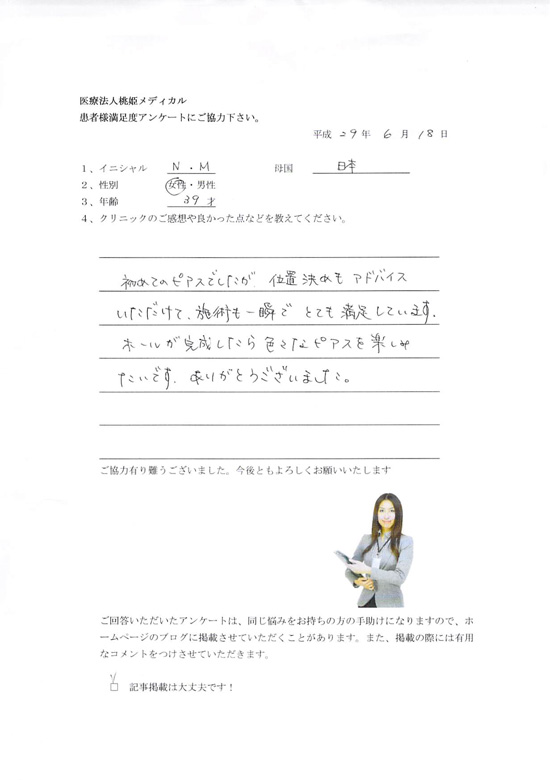 医療法人桃姫メディカル
患者様満足度アンケートにご協力下さい。
平成 29 年 6 月 18 日
1、イニシャル N・M 母国 日本
2、性別 女性・男性
3、年齢 39 才
4、クリニックのご感想や良かった点などを教えてください。
初めてのピアスでしたが 位置決めも アドバイス
いただけて、施術も一瞬で とても満足しています。
ホールが完成したら色々なピアスを楽しみ
たいです。ありがとうございました。
ご協力有り難うございました。今後ともよろしくお願いいたします
ご回答いただいたアンケートは、同じ悩みをお持ちの方の手助けになりますので、ホ
ームページのブログに掲載させていただくことがあります。また、掲載の際には有用
なコメントをつけさせていただきます。
□ 記事掲載は大丈夫です！